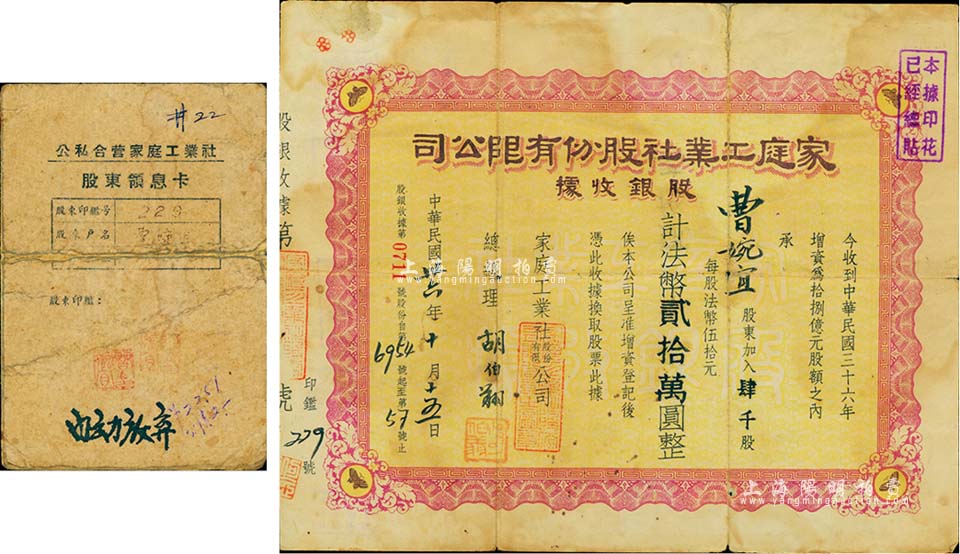 #22
公私合营家庭工業社
股東領息卡
股東印鑑号 229
股東户名
股東印鑑：
自动放弃
本據印花
已經總貼
家庭工業社股份有限公司
股銀收據
今收到中華民國三十六年
增資為拾捌億元股額之內
承
曹婉宜 股東加入肆千股
每股法幣伍拾元
計法幣貳拾萬圓整
俟本公司呈准增資登記後
憑此收據換取股票此據
家庭工業社股份有限公司
總經理 胡伯翔
中華民國卅六年十月十五日
股銀收據第0711號股份自第6954號起至第57號止
股銀收據第 號
印鑑229號
上海陽明拍賣
www.yangmingauction.com
上海陽明拍賣
www.yangmingauction.com
上海陽明拍賣
www.yangmingauction.com